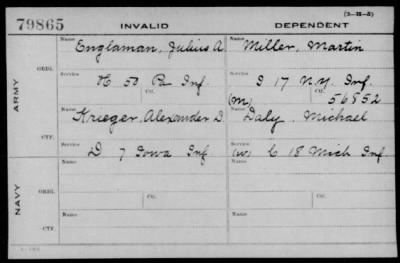 (3-11-5)
79865 INVALID DEPENDENT
Name Name
Englaman, Julius A. Miller, Martin
ORIG. Service Service
H 50 Pa Inf I 17 N.Y. Inf.
Ctf. (M) Ctf. 56852
ARMY
Name Name
Krieger, Alexander D. Daly, Michael
CTF. Service Service
D 7 Iowa Inf (W) C 18 Mich Inf
Name Name
ORIG. Service Ctf. Service Ctf.
NAVY
Name Name
CTF. Service Service